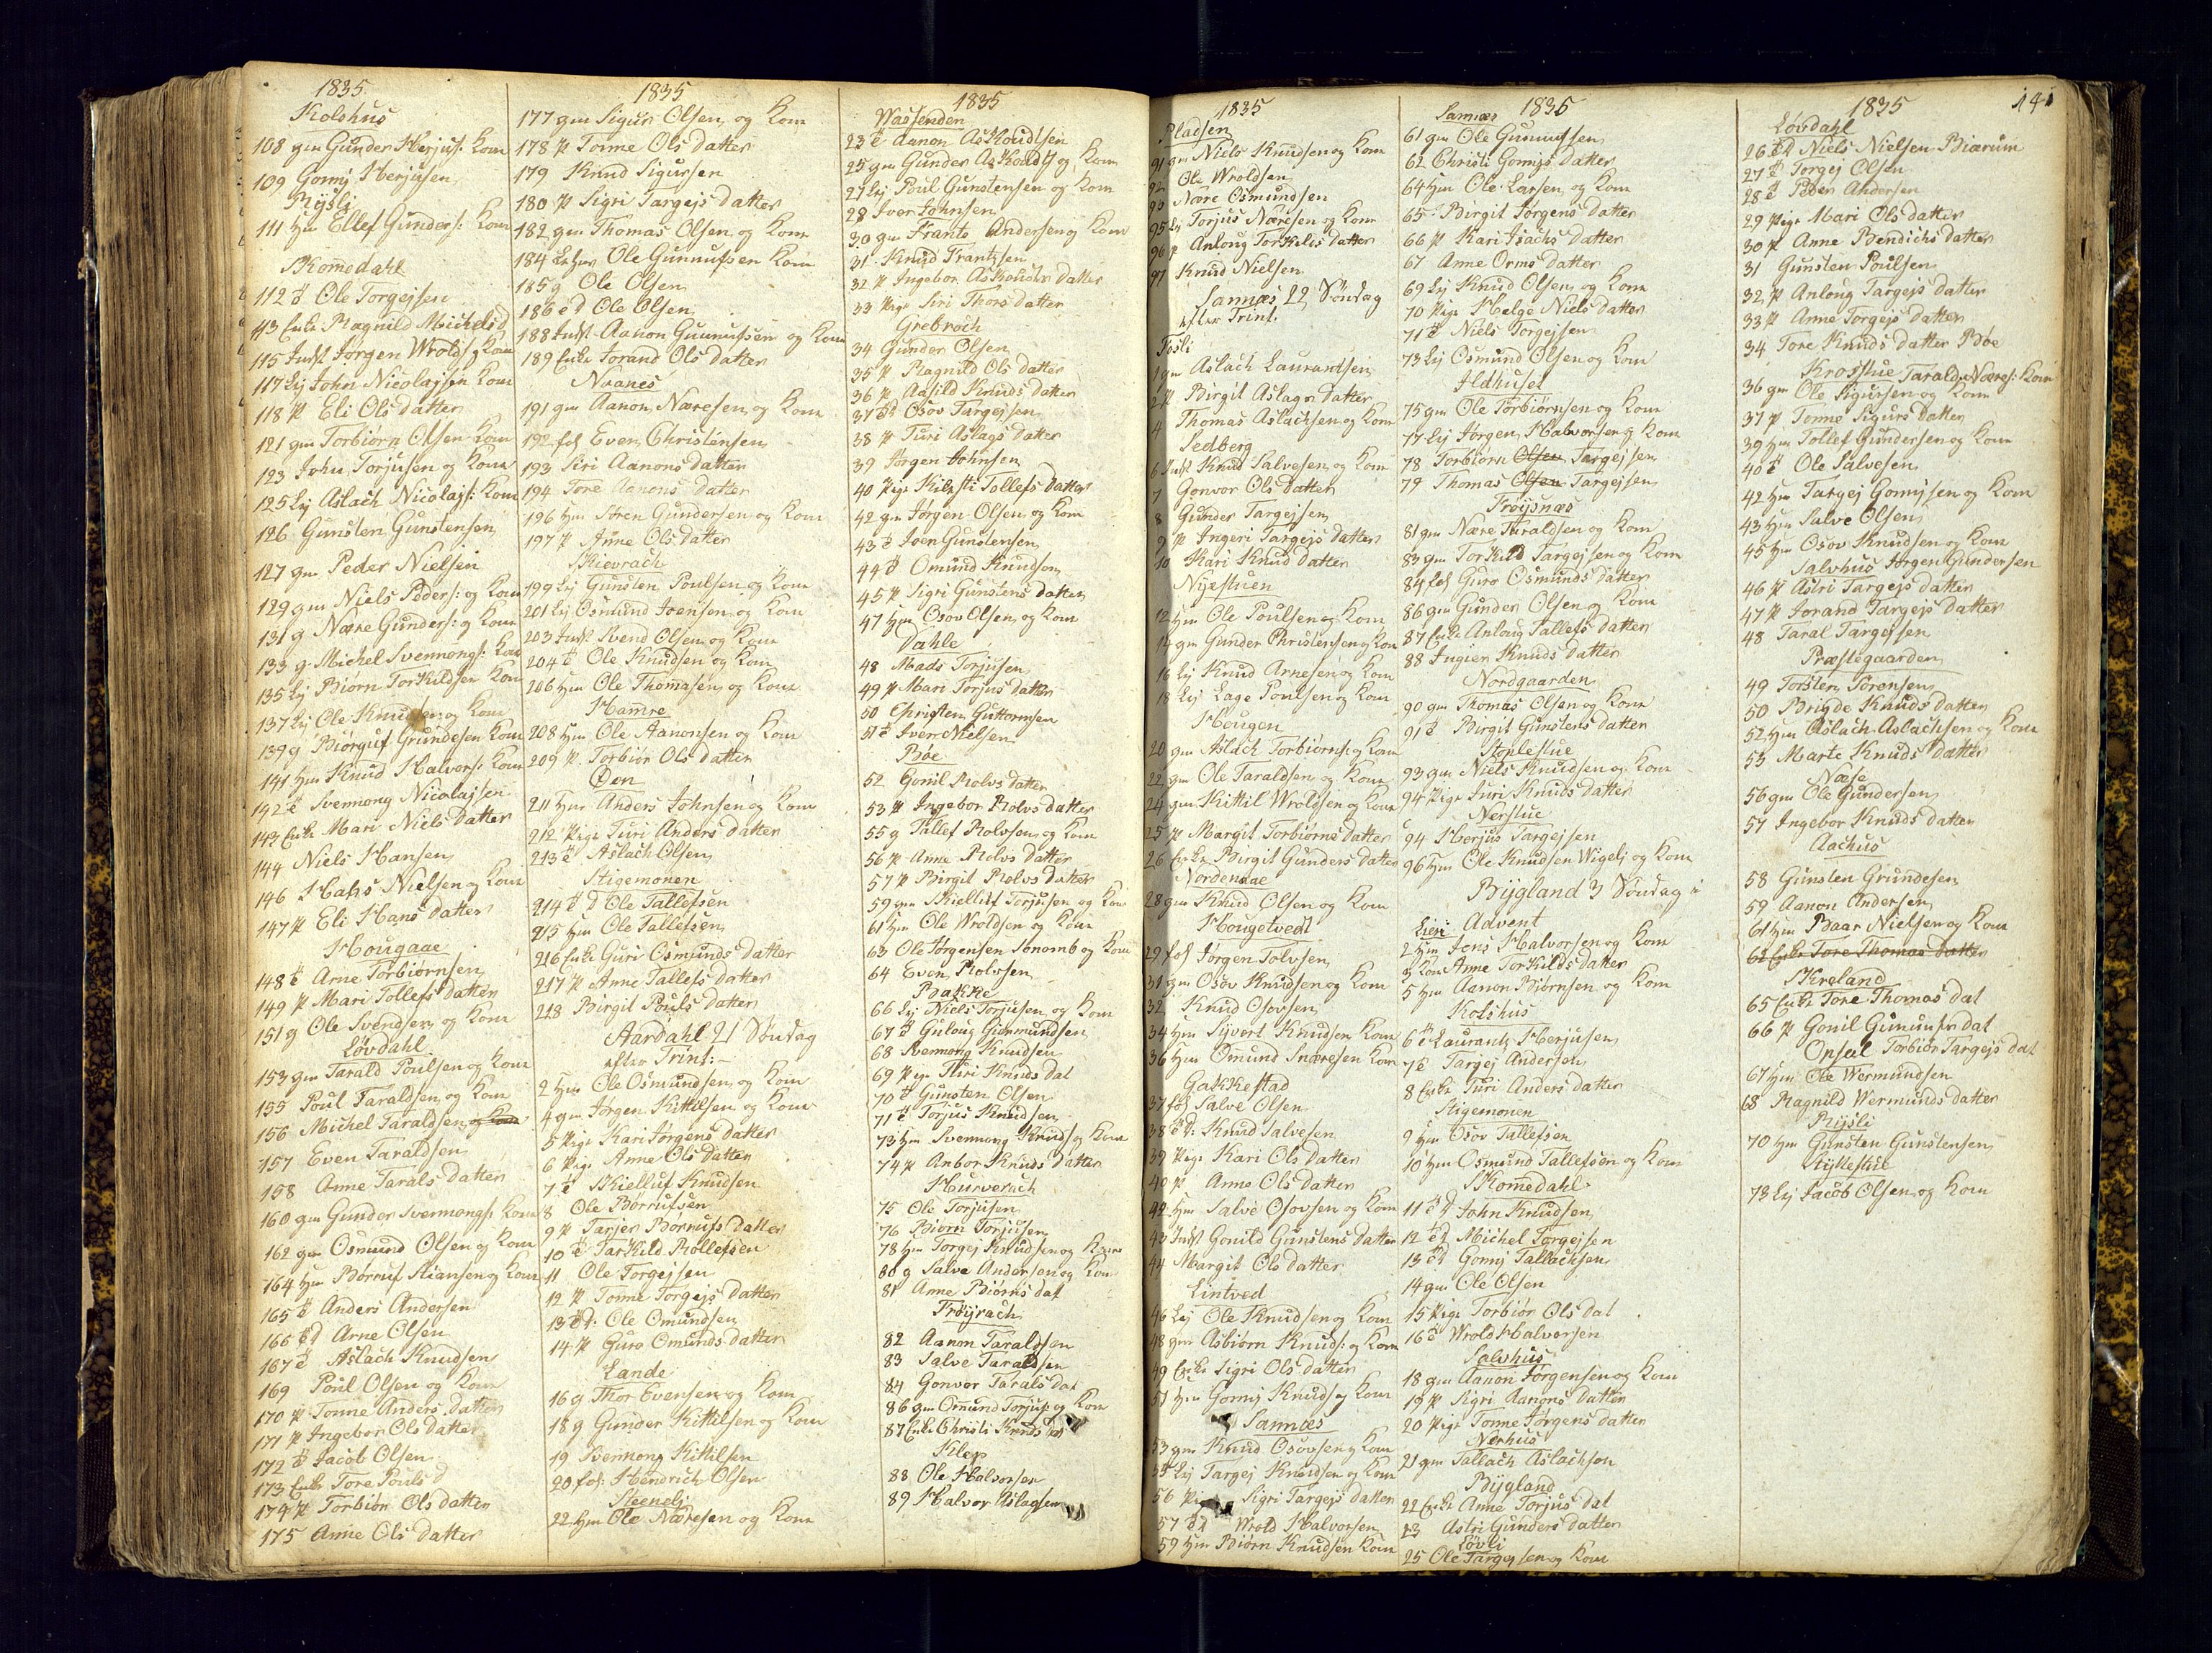 1835
Kolshus
108 gm Gunder Herjus: Kom
109 Gomij Herjusen
Rysli
111 Hm Ellef Gunders: Kom
Skomedahl
112 Ole Torgejsen
113 Enke Ragnild Michelsd
115 Indst Jørgen Wrolds og Kom
117 Lej John Nicolajsen Kom
118 p Eli Ols datter
121 gm Torbiørn Olsen Kom
123 John Torjusen og Kom
125 Lej Aslach Nicolajs: Kom
126 Gunsten Gunstensen
127 gm Peder Nielsen
129 gm Niels Peders: og Kom
131 g Nære Gunders: og Kom
133 g Michel Svennongs: Kom
135 Lej Biørn Torkildsen Kom
137 Lej Ole Knudsen og Kom
139 g Biørguf Grundesen Kom
141 Hm Knud Halvors: Kom
142 Svennong Nicolajsen
143 Enke Mari Niels datter
144 Niels Hansen
146 Hans Nielsen og Kom
147 p Eli Hans datter
Hougaae
148 Arne Torbiørnsen
149 p Mari Tollefs datter
151 g Ole Svendsen og Kom
Løvdahl
153 gm Tarald Poulsen og Kom
155 Poul Taraldsen og Kom
156 Michel Taraldsen og Kom
157 Even Taraldsen
158 Anne Tarals datter
160 gm Gunder Svennongs: Kom
162 gm Osmund Olsen og Kom
164 Hm Børruf Stiansen og Kom
165 Anders Andersen
166 Arne Olsen
167 Aslach Knudsen
169 Poul Olsen og Kom
170 p Tonne Anders datter
171 p Ingebor Ols datter
172 Jacob Olsen
173 Enke Tore Pouls d
174 p Torbiør Ols datter
175 Anne Ols datter
1835
177 gm Sigur Olsen og Kom
178 p Tonne Ols datter
179 Knud Sigursen
180 p Sigri Targejs datter
182 gm Thomas Olsen og Kom
184 Ole Gunnufsen Kom
185 g Ole Olsen
186 Ole Olsen
188 Indst Aanon Gunnufsen og Kom
189 Enke Torand Ols datter
Naanes
191 gm Aanon Næresen og Kom
192 fod Even Christensen
193 Siri Aanons datter
194 Tore Aanons datter
196 Hm Søren Gundersen og Kom
197 p Anne Ols datter
Kievrach
199 Lej Gunsten Poulsen og Kom
201 Lej Osmund Joensen og Kom
203 Indst Svend Olsen og Kom
204 Ole Knudsen og Kom
206 Hm Ole Thomasen og Kom
Hamre
208 Hm Ole Aanonsen og Kom
209 p Torbiør Ols datter
Øen
211 Hm Anders Johnsen og Kom
212 Pige Turi Anders datter
213 Aslach Olsen
Stigemonen
214 Ole Tallefsen
215 Hm Ole Tallefsen
216 Enke Guri Osmunds datter
217 p Anne Tallefs datter
218 Birgit Pouls datter
Aardahl 21 Søndag
efter Trint:
2 Hm Ole Osmundsen og Kom
4 gm Jørgen Kittilsen og Kom
5 Pige Kari Jørgens datter
6 Pige Anne Ols datter
7 Kielluf Knudsen
8 Ole Børrufsen
9 p Tarjer Børrufs datter
10 Tarkild Rollefsen
11 Ole Torgejsen
12 p Tonne Torgejs datter
13 Ole Omundsen
14 p Guro Omunds datter
Lande
16 g Thor Evensen og Kom
18 g Gunder Kittilsen og Kom
19 Svennong Kittilsen
20 fod: Hendrich Olsen
Steenelj
22 Hm Ole Næresen og Kom
1835
Wassenden
23 Aanon Askoudtsen
25 gm Gunder Askoudts og Kom
27 Lej Poul Gunstensen og Kom
28 Iver Johnsen
30 gm Frants Andersen og Kom
31 Knud Frantzsen
32 p Ingebor Askoudts datter
33 Pige Siri Thors datter
Grebroch
34 Gunder Olsen
35 p Ragnild Ols datter
36 p Aasild Knuds datter
37 Osov Targejsen
38 p Turi Aslags datter
39 Jørgen Johnsen
40 Pige Kiersti Tollefs datter
42 gm Jørgen Olsen og Kom
43 Joen Gunstensen
44 Omund Knudsen
45 p Sigri Gunstens datter
47 Hm Osov Olsen og Kom
Dahle
48 Mads Torjusen
49 p Mari Torjus datter
50 Christen Guttormsen
51 Iver Nielsen
Bøe
52 Gonil Rolvs datter
53 p Ingebor Rolvs datter
55 g Tallef Rolvsen og Kom
56 p Anne Rolvs datter
57 p Birgit Rolvs datter
59 gm Kielluf Torjusen og Kom
61 Hm Ole Wroldsen og Kom
63 Ole Jørgensen Sonomb og Kom
64 Even Rolvsen
Bakke
66 Lej Niels Torjusen og Kom
67 Guloug Giermundsen
68 Svennong Knudsen
69 Pige Siri Knuds dat
70 Gunsten Olsen
71 Torjus Knudsen
73 Hm Svennong Knuds og Kom
74 p Anbor Knuds datter
Hurverach
75 Ole Torjusen
76 Biørn Torjusen
78 Hm Torgej Knudsen og Kom
80 g Salve Andersen og Kom
81 Anne Biørns dat
Frøyrach
82 Aanon Taraldsen
83 Salve Taraldsen
84 Gonvor Tarals dat
86 gm Omund Torjus: og Kom
87 Enke Christi Knuds dat
Klep
88 Ole Halvorsen
89 Halvor Aslagsen
1835
Pladsen
91 gm Niels Knudsen og Kom
Ole Wroldsen
Nære Osmundsen
95 Lej Torjus Næresen og Kom
96 p Anloug Torkilds datter
97 Knud Nielsen
Sannæs 22 Søndag
efter Trint.
Tosli
1 gm Aslach Laurandsen
2 p Birgit Aslags datter
4 Thomas Aslachsen og Kom
Sedberg
6 Indst Knud Salvesen og Kom
7 Gonvor Ols datter
8 Gunder Targejsen
9 p Ingeri Targejs datter
10 Kari Knud datter
Nyestuen
12 Hm Ole Poulsen og Kom
14 gm Gunder Christensen og Kom
16 Lej Knud Arnesen og Kom
18 Lej Lage Poulsen og Kom
Hougen
20 gm Aslach Torbiørns: og Kom
22 gm Ole Taraldsen og Kom
24 gm Kittil Wroldsen og Kom
25 p Margit Torbiørns datter
26 Enke Birgit Gunders datter
Nordenaae
28 gm Knud Olsen og Kom
Hougetvedt
29 fod Jørgen Tolvsen
31 gm Osov Knudsen og Kom
32 Knud Osovsen
34 Hm Syvert Knudsen Kom
36 Hm Omund Snæresen Kom
Gakkestad
37 fod Salve Olsen
38 Knud Salvesen
39 Pige Kari Ols datter
40 p Anne Ols datter
42 Hm Salve Osovsen og Kom
43 Indst Gonild Gunstens datter
44 Margit Ols datter
Lintved
46 Lej Ole Knudsen og Kom
48 gm Asbiørn Knuds: og Kom
49 Enke Sigri Ols datter
51 Hm Gomij Knuds og Kom
Sannæs
53 gm Knud Osovsen og Kom
55 Lej Targej Knudsen og Kom
56 Sigri Targejs datter
57 Wrold Halvorsen
59 Hm Biørn Knudsen Kom
Sannæs 1835
61 gm Ole Gunnufsen
62 Christi Gomijs datter
64 Hm Ole Larsen og Kom
65 Birgit Jørgens datter
66 p Kari Isachs datter
67 Anne Orms datter
69 Lej Knud Olsen og Kom
70 Pige Helge Niels datter
71 Niels Torgejsen
73 Lej Osmund Olsen og Kom
Ildhuset
75 gm Ole Torbiørnsen og Kom
77 Lej Jørgen Halvorsen og Kom
78 Torbiørn Olsen Targejsen
79 Thomas Olsen Targejsen
Frøysnæs
81 gm Nære Taraldsen og Kom
83 gm Torkild Targejsen og Kom
84 fod Guro Osmunds datter
86 gm Gunder Olsen og Kom
87 Enke Anloug Tallefs datter
88 Ingier Knuds datter
Nordgaarden
90 gm Thomas Olsen og Kom
91 Birgit Gunstens datter
Stoplestue
93 gm Niels Knudsen og Kom
94 Pige Juri Knuds datter
Nerstue
94 Herjus Targejsen
96 Hm Ole Knudsen Wigelj og Kom
Bygland 3 Søndag i
Lien Advent
2 Hm Jens Halvorsen og Kom
3 Kom Anne Torkilds datter
5 Hm Aanon Biørnsen og Kom
Kolshus
6 Laurants Herjusen
7 Targej Andersen
8 Enke Turi Anders datter
Stigemonen
9 Hm Osov Tallefsen
10 Hm Osmund Tallefsen og Kom
Skomedahl
11 John Knudsen
12 Michel Torgejsen
13 Gomij Tallachsen
14 gm Ole Olsen
15 Pige Torbiør Ols dat
16 Wrold Halvorsen
Salvhus
18 gm Aanon Jørgensen og Kom
19 p Sigri Aanons datter
20 Pige Tonne Jørgens datter
Nerhus
21 gm Tallach Aslachson
Bygland
22 Enke Anne Torjus dat
23 Astri Gunders datter
Løvli
25 Ole Targejsen og Kom
1835 141
Løvdahl
26 Niels Nielsen Biærum
27 Torgej Olsen
28 Peder Andersen
29 Pige Mari Ols datter
30 p Anne Bendichs datter
31 Gunsten Poulsen
32 p Anloug Targejs datter
33 p Anne Torgejs datter
34 Tore Knuds datter Bøe
Krosstue Tarald Næres: Kom
36 gm Ole Sigursen og Kom
37 p Tonne Sigurs datter
39 Hm Tollef Gundersen og Kom
40 Ole Salvesen
42 Hm Targej Gomijsen og Kom
43 Hm Salve Olsen
45 Hm Osov Knudsen og Kom
Salvhus Jørgen Gundersen
46 p Astri Targejs datter
47 p Jorand Targejs datter
48 Taral Targejsen
Præstegaarden
49 Torsten Sørensen
50 Brigde Knuds datter
52 Hm Aslach Aslachsen og Kom
53 Marte Knuds datter
Næse
56 gm Ole Gundersen
57 Ingebor Knuds datter
Aachus
58 Gunsten Grundesen
59 Aanon Andersen
61 Hm Baar Nielsen og Kom
62 Enke Tore Thomas datter
Kreland
65 Enke Tore Thomas dat
66 p Gonil Gunnufs dat
Opsal Torbiør Targejs dat
67 Hm Ole Wermundsen
68 Ragnild Wermunds datter
Rysli
70 Hm Gunsten Gunstensen
Kyllestue
73 Lej Jacob Olsen og Kom